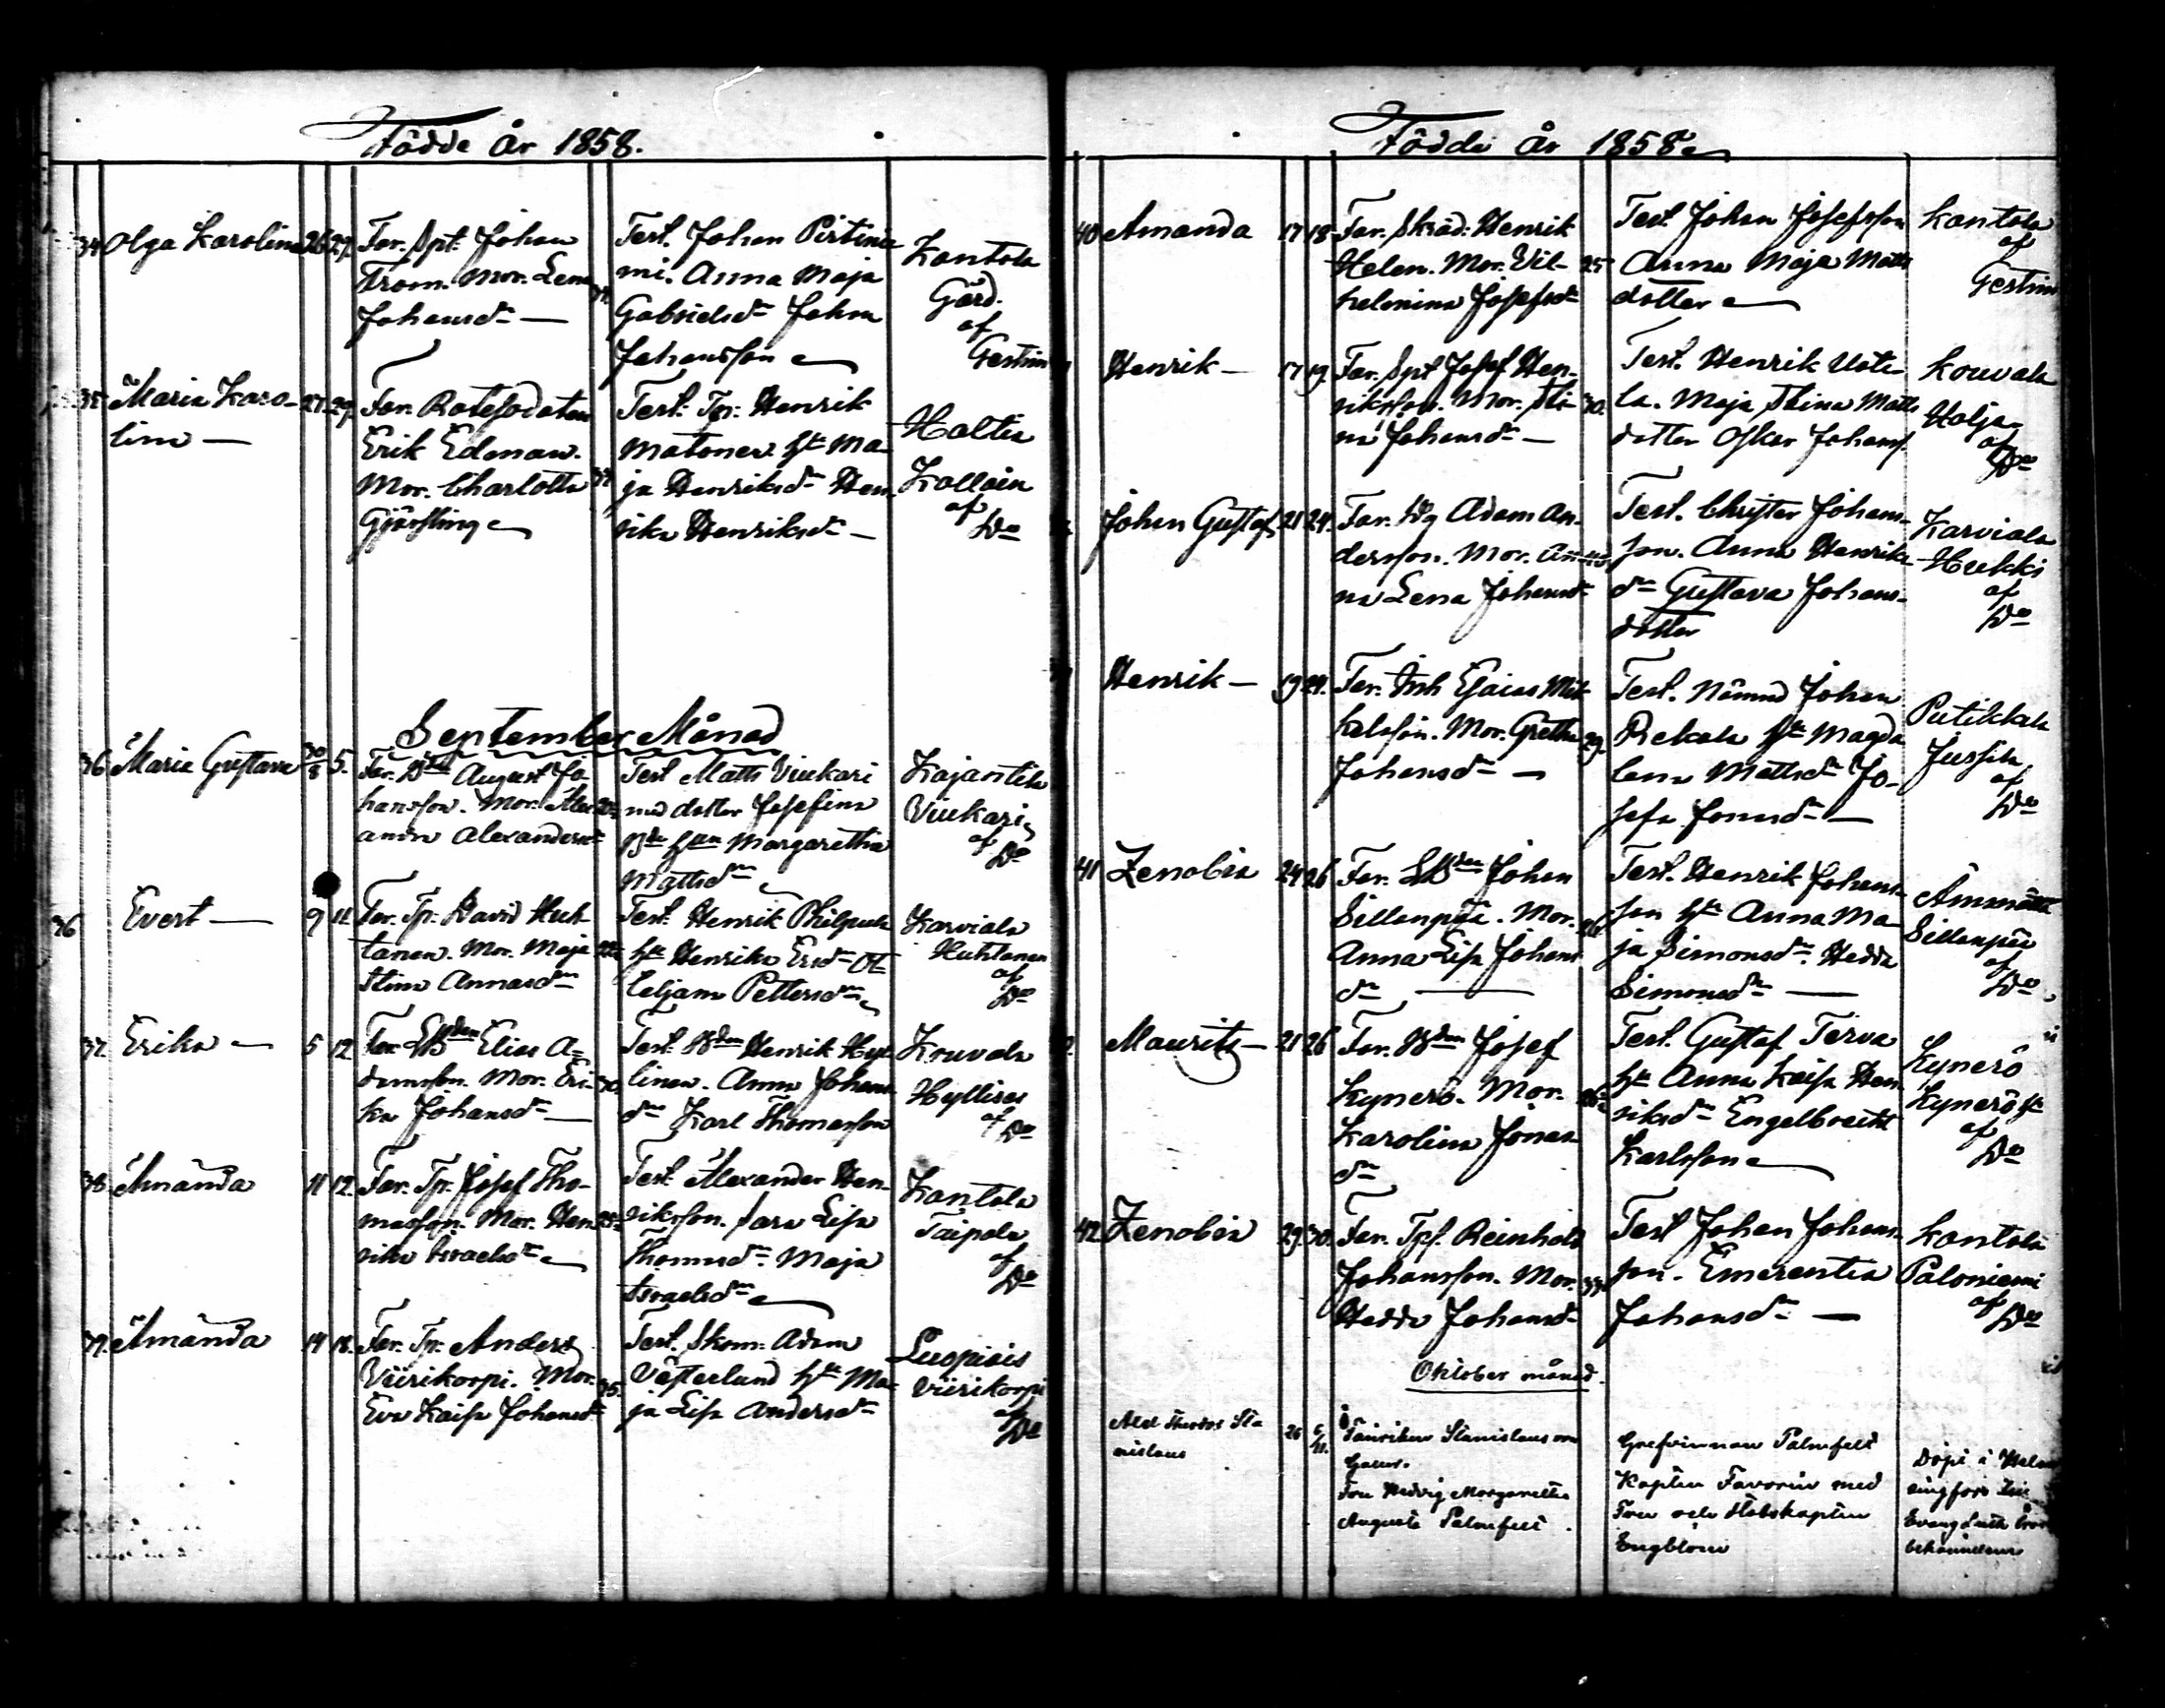 Födde år 1858.
34 Olga Karolina 26 27. Far. Spt. Johan
Trom. Mor. Lena
Johansdr —
Test. Johan Pirtinie
mi. Anna Maja
Gabrielsdr Johan
Johansson
Kantola
Gård.
af
Gestrin
35 Maria Karo- 27. 29. Far. Rotesodaten
lina —
Erik Edman.
Mor. Charlotta
Gjärsling
Test. Tp. Henrik
Matonen hu Ma-
ja Henriksdr Hen-
rika Henriksdr —
Haltia
Kolloin
af
Do
September Månad
36 Maria Gustava 30/8 5. Far. August Jo-
hansson. Mor. Alex
andra Alexandersdr
Test Matts Viukari
med dotter Josefina
Margaretha
Mattsdr
Kajantila
Viukari
af
Do
36 Evert — 9 11. Far. Tp. David Huh-
tanen. Mor. Maja
Stina Annasdr
Test. Henrik
hu Henrika Ersdr Ot
Celjam Pettersdr
Karviala
Huhtanen
af
Do
37. Erika — 5 12 Far. Elias A-
damsson. Mor. Eri- 30.
ka Johansdr —
Test. Henrik Hyl-
linen. Anna Johans
dr Karl Thomasson
Kouvala
af
Do
38. Amanda 11 12. Far. Tp. Josef Tho-
masson. Mor. Hen
rika Israelsdr
Test. Alexander Hen-
riksson. Sara Lisa
Thomasdr. Maja
Israelsdr
Kantola
Taipale
af
Do
39. Amanda 14 18. Far. Tp. Anders
Viirikorpi. Mor. 35.
Eva Kaisa Johansdr
Test. Skom. Adam
Vesterlund hu Ma-
ja Lisa Andersdr
Luopiois
Viirikorpi
af
Do
Födde år 1858
40 Amanda 17 18 Far. Skräd. Henrik
Helen. Mor. Vil- 25
helmina Josefsdr
Test. Johan Josefsson
Anna Maja Matts
dotter
Kantola
af
Gestrin
Henrik — 17 19. Far. Spt Josef Hen-
riksson. Mor. Sti- 30.
na Johansdr —
Test. Henrik Uoti-
la. Maja Stina Matts
dotter Oskar Johans.
Kouvala
Holja
af
Do
Johan Gustaf 21 24. Far. Adam An-
dersson. Mor. An-
na Lena Johansdr
Test. Christer Johans-
son. Anna Henriks
dr Gustava Johans-
dotter
Karviala
Heikki
af
Do
Henrik — 19 24. Far. Inh Esaias Mik
kelsson. Mor. Gretha 29.
Johansdr —
Test. Nämnd Johan
Rekola hu Magda
lena Mattsdr Jo-
sefa Jonasdr —
Putikkala
Jussila
af
Do
41 Zenobia 24 26 Far. Johan
Sillanpää. Mor.
Anna Lisa Johans
dr —
Test. Henrik Johans-
son hu Anna Ma-
ja Simonsdr. Hedda
Simonsdr —
Ämmättä
Sillanpää
af
Do
Maurits — 21 26 Far. Josef
Kynerö. Mor.
Karolina Jonas
dr
Test. Gustaf Terva
hu Anna Kaisa Hen
riksdr Engelbrecht
Karlsson
Kynerö
Kynerö
af
Do
42 Zenobia 29 30. Far. Reinhold
Johansson. Mor. 33.
Hedda Johansdr
Test Johan Johans-
son. Emerentia
Johansdr —
Kantola
Paloniemi
af
Do
Oktober månad.
Stanislaus 26 6/11. Fänriken Stanislaus von
Fru Hedvig Margaretha
Augusta Palmfelt.
Grefvinnan Palmfelt
Kapten Favorin med
Fru och Stabskapten
Engblom
Döpt i Hel
singfors
Evang Luth
bekännelsen